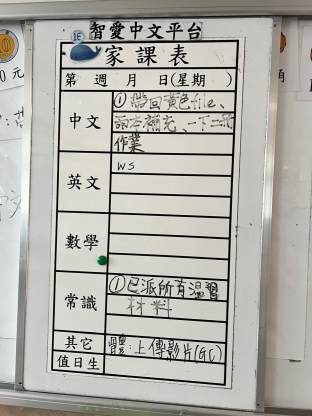 1E 智愛中文平台
家課表
第 週 月 日(星期 )
中文
①帶回黃色file、
補充、一下二
作業
英文
ws
數學
常識
①已派所有溫習
材料
其它
體:上傳影片(GC)
值日生
元
角